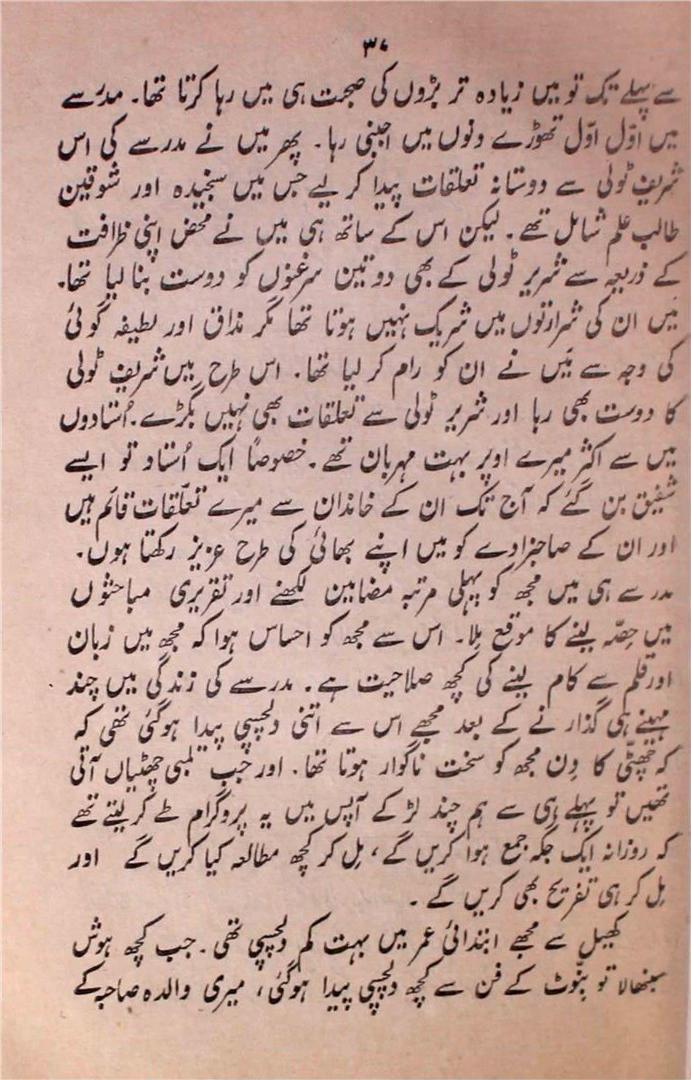 ۳۷
سے پہلے تک تو میں زیادہ تر بڑوں کی صحبت ہی میں رہا کرتا تھا۔ مدرسے
میں اوّل اوّل تھوڑے دنوں میں اجنبی رہا۔ پھر میں نے مدرسے کی اس
شریف ٹولی سے دوستانہ تعلقات پیدا کر لیے جس میں سنجیدہ اور شوقین
طالب علم شامل تھے۔ لیکن اس کے ساتھ ہی میں نے محض اپنی ظرافت
کے ذریعہ سے شریر ٹولی کے بھی دو تین سرغنوں کو دوست بنا لیا تھا۔
میں ان کی شرارتوں میں شریک نہیں ہوتا تھا مگر مذاق اور لطیفہ گوئی
کی وجہ سے میں نے ان کو رام کر لیا تھا۔ اس طرح میں شریف ٹولی
کا دوست بھی رہا اور شریر ٹولی سے تعلقات بھی نہیں بگڑے۔ اُستادوں
میں سے اکثر میرے اوپر بہت مہربان تھے۔ خصوصًا ایک اُستاد تو ایسے
شفیق بن گئے کہ آج تک ان کے خاندان سے میرے تعلّقات قائم ہیں
اور ان کے صاحبزادے کو میں اپنے بھائی کی طرح عزیز رکھتا ہوں۔
مدرسے ہی میں مجھ کو پہلی مرتبہ مضامین لکھنے اور تقریری مباحثوں
میں حصّہ لینے کا موقع مِلا۔ اس سے مجھ کو احساس ہوا کہ مجھ میں زبان
اور قلم سے کام لینے کی کچھ صلاحیت ہے۔ مدرسے کی زندگی میں چند
مہینے ہی گذارنے کے بعد مجھے اس سے اتنی دلچسپی پیدا ہوگئی تھی کہ
کہ چھٹّی کا دِن مجھ کو سخت ناگوار ہوتا تھا۔ اور جب لمبی چھٹیاں آتی
تھیں تو پہلے ہی سے ہم چند لڑکے آپس میں یہ پروگرام طے کر لیتے تھے
کہ روزانہ ایک جگہ جمع ہوا کریں گے، مِل کر کچھ مطالعہ کیا کریں گے اور
مِل کر ہی تفریح بھی کریں گے۔
کھیل سے مجھے ابتدائی عمر میں بہت کم دلچسپی تھی۔ جب کچھ ہوش
سنبھالا تو بنّوٹ کے فن سے کچھ دلچسپی پیدا ہوگئی، میری والدہ صاحبہ کے